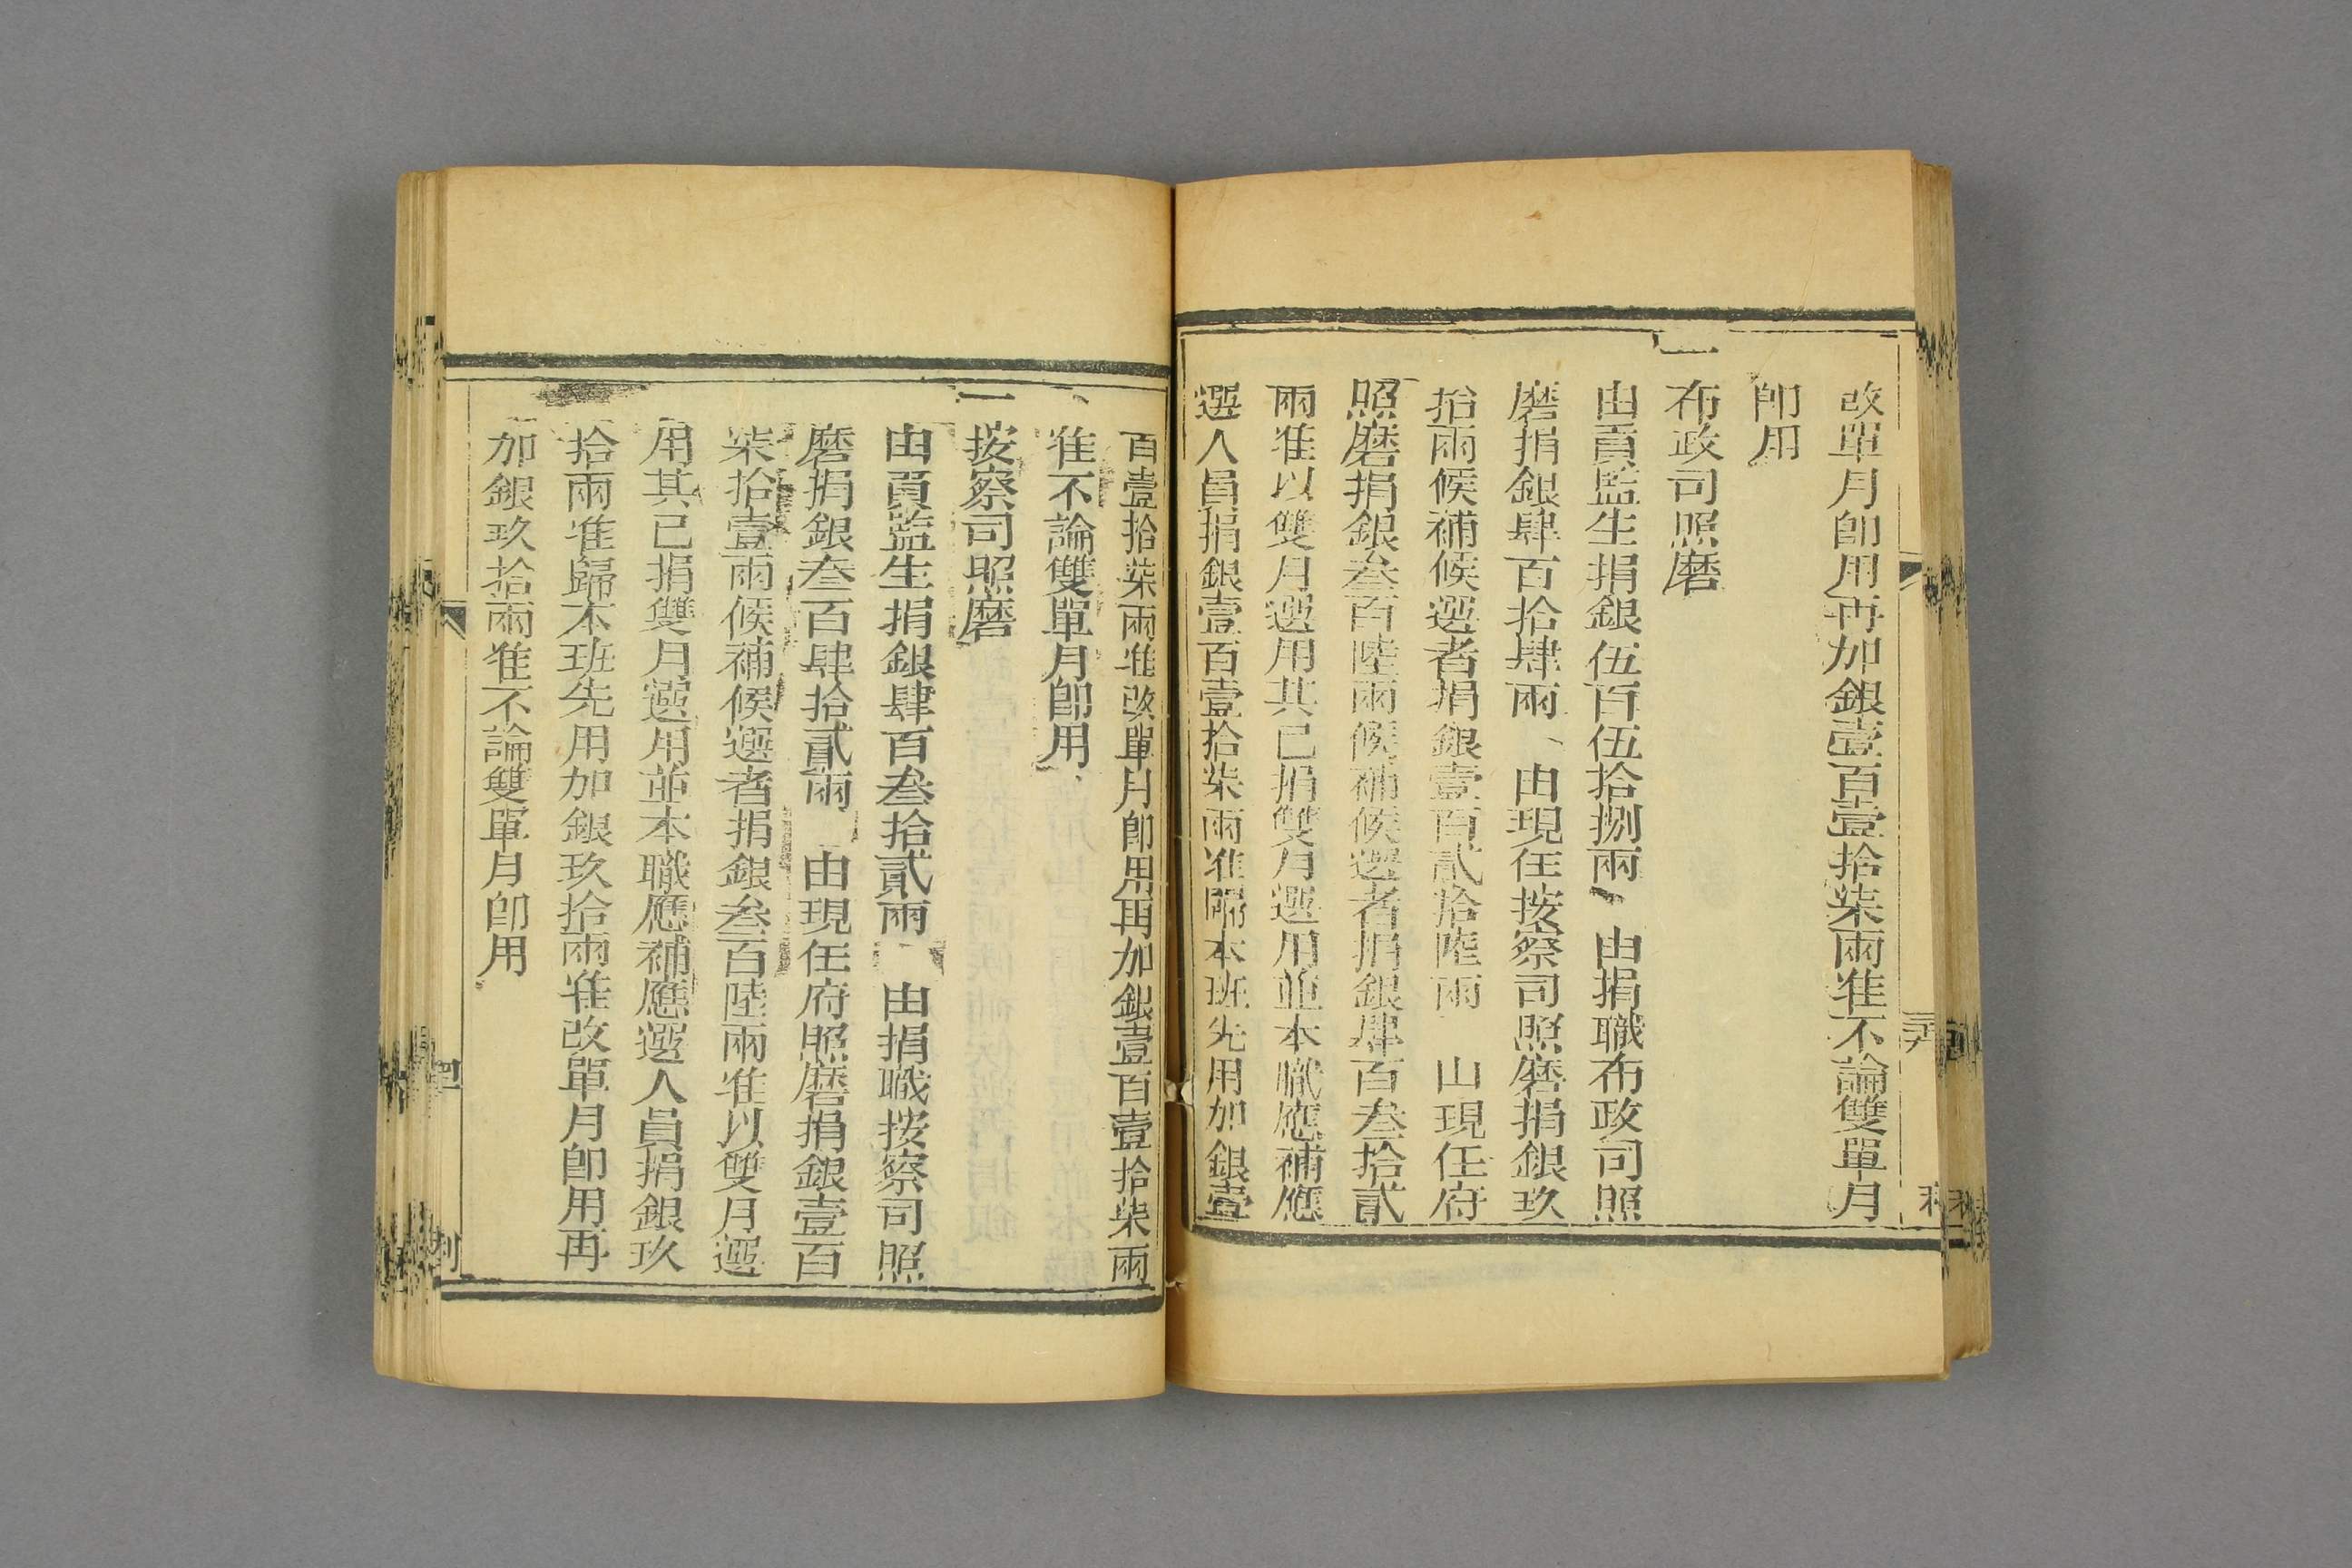 改單月卽用再加銀壹百壹拾柒兩准不論雙單月
卽用
一布政司照磨
由貢監生捐銀伍百伍拾捌兩、由捐職布政司照
磨捐銀肆百拾肆兩、由現任按察司照磨捐銀玖
拾兩候補候選者捐銀壹百貳拾陸兩 由現任府
照磨捐銀叁百陸兩候補候選者捐銀肆百叁拾貳
兩准以雙月選用其已捐雙月選用並本職應補應
選人員捐銀壹百壹拾柒兩准歸本班先用加銀壹
百壹拾柒兩准改單月卽用再加銀壹百壹拾柒兩
准不論雙單月卽用
一按察司照磨
由貢監生捐銀肆百叁拾貳兩 由捐職按察司照
磨捐銀叁百肆拾貳兩 由現任府照磨捐銀壹百
柒拾壹兩候補候選者捐銀叁百陸兩准以雙月選
用其已捐雙月選用並本職應補應選人員捐銀玖
拾兩准歸本班先用加銀玖拾兩准改單月卽用再
加銀玖拾兩准不論雙單月卽用